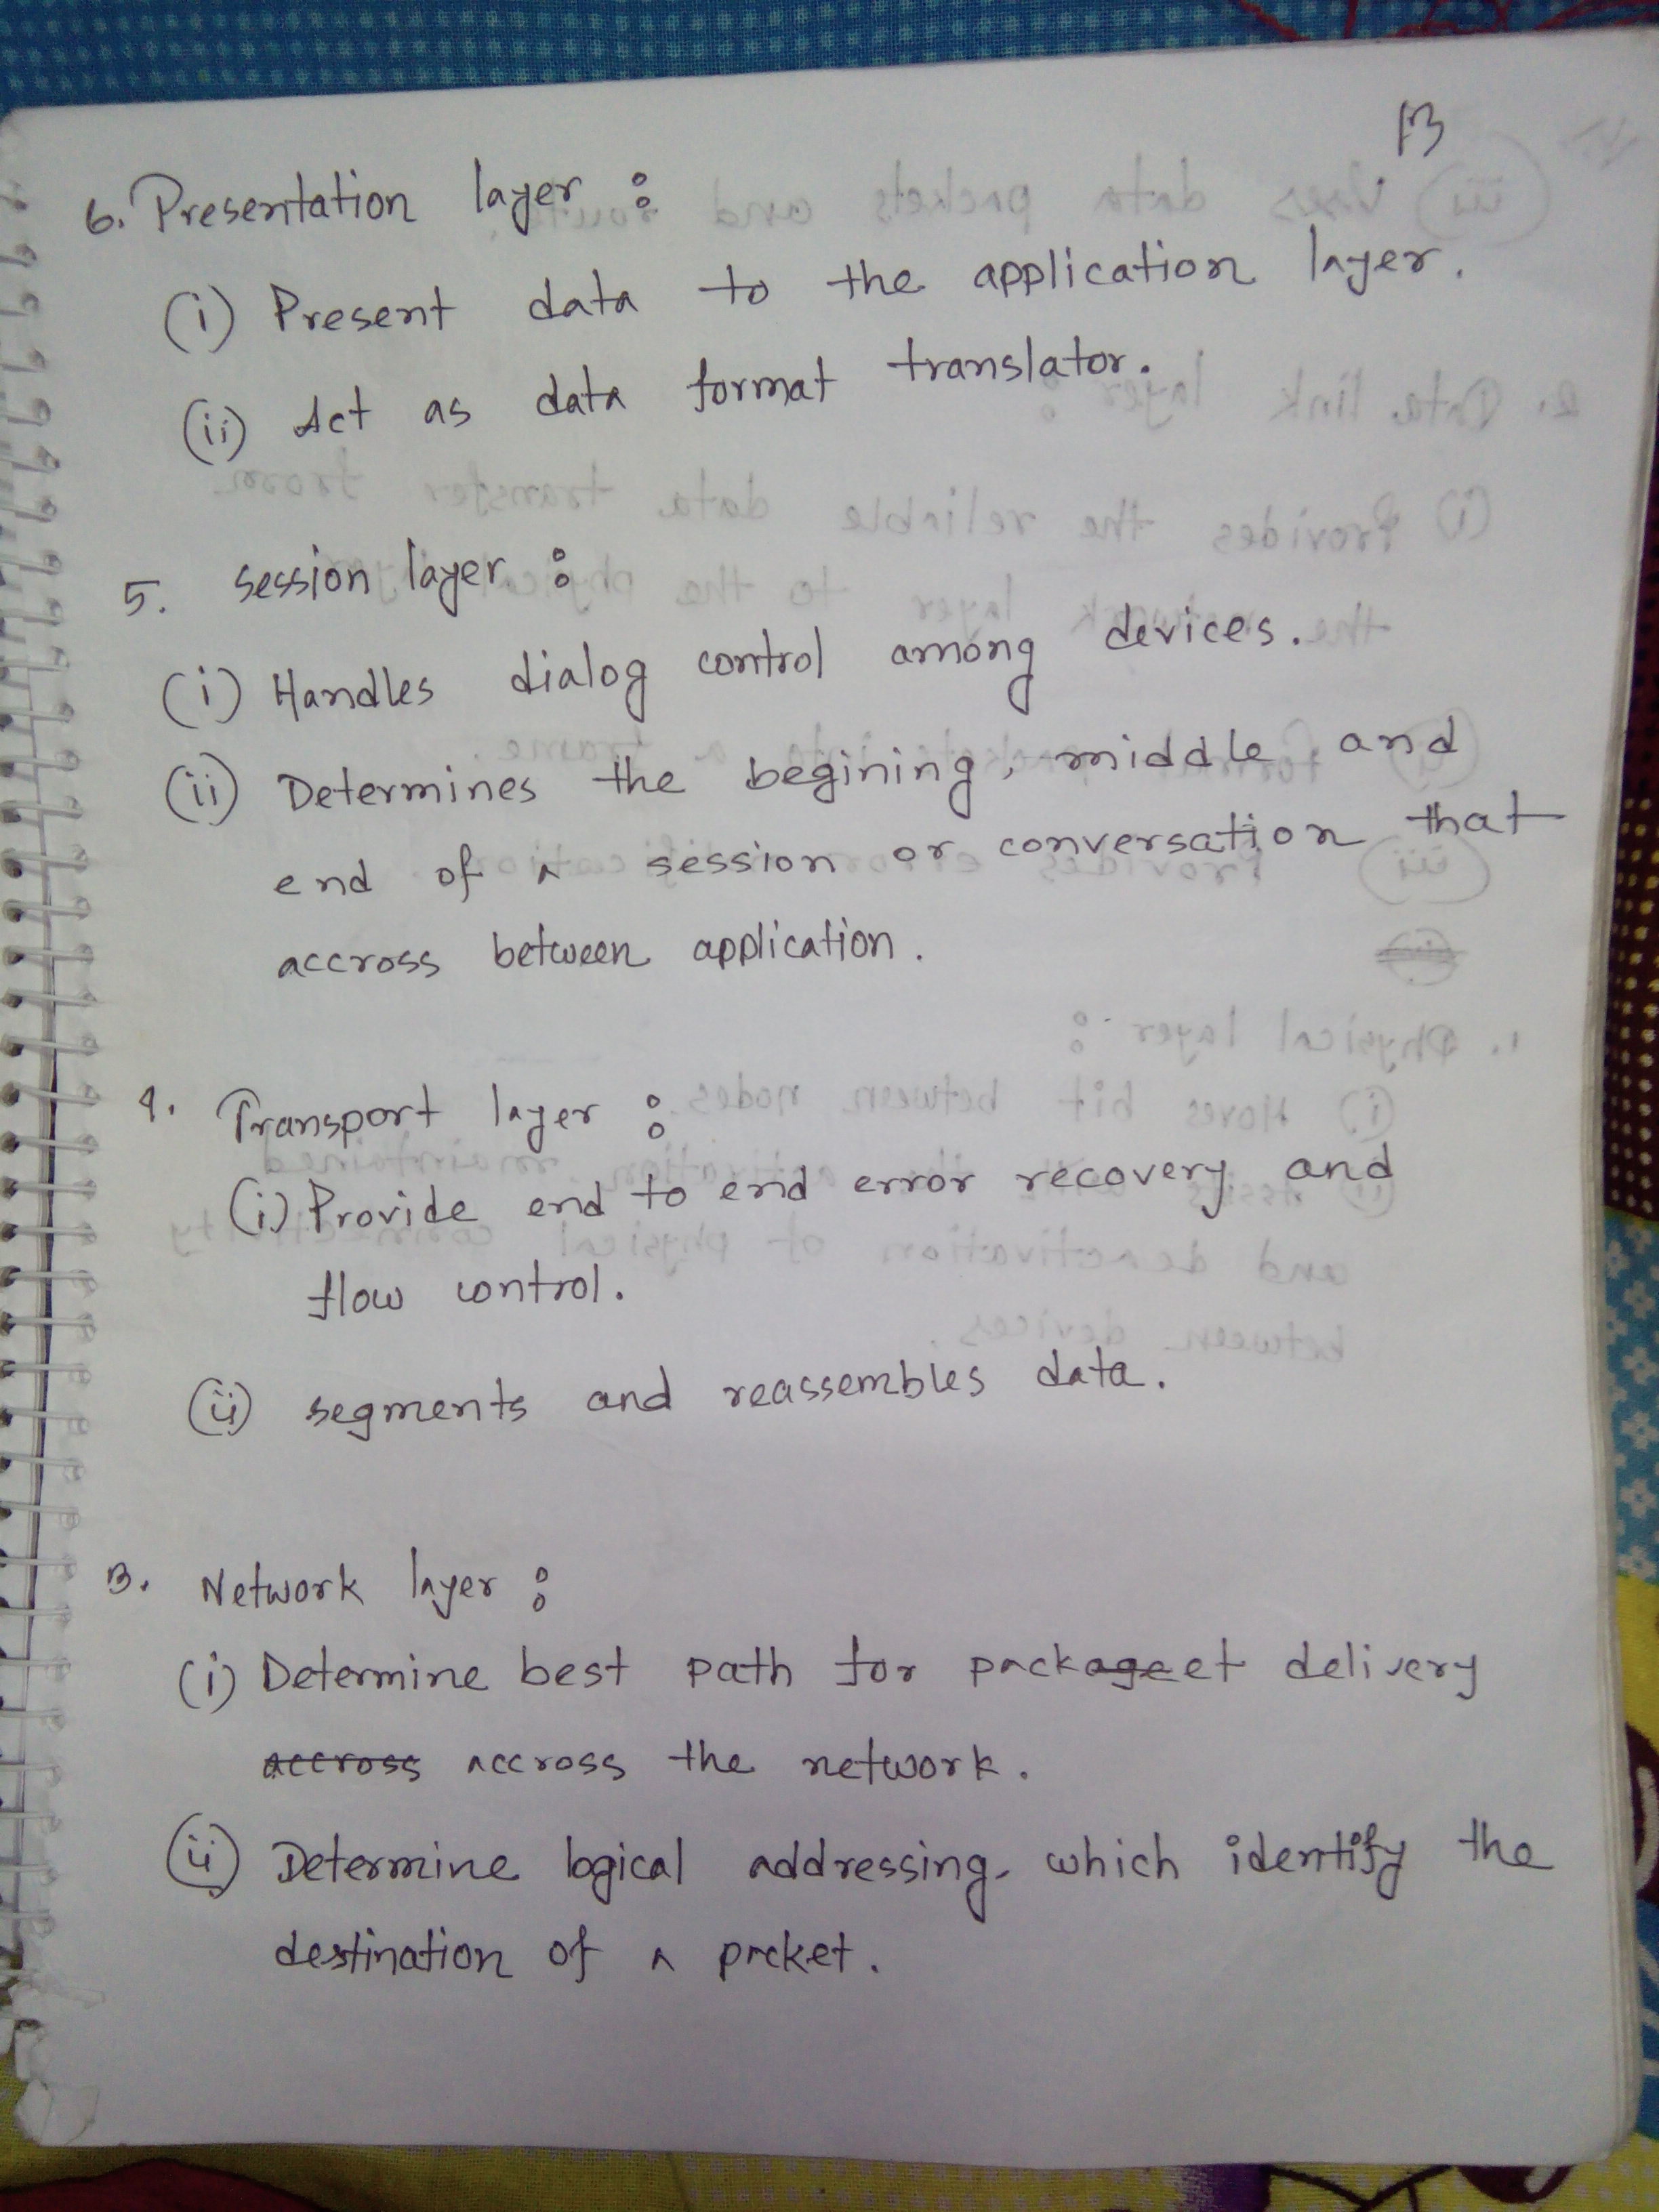 13
6. Presentation layer :
(i) Present data to the application layer.
(ii) Act as data format translator.
5. session layer :
(i) Handles dialog control among devices.
(ii) Determines the begining, middle and
end of a session or conversation that
accross between application.
4. Transport layer :
(i) Provide end to end error recovery and
flow control.
(ii) segments and reassembles data.
3. Network layer :
(i) Determine best path for packageet delivery
accross accross the network.
(ii) Determine logical addressing, which identify the
destination of a packet.